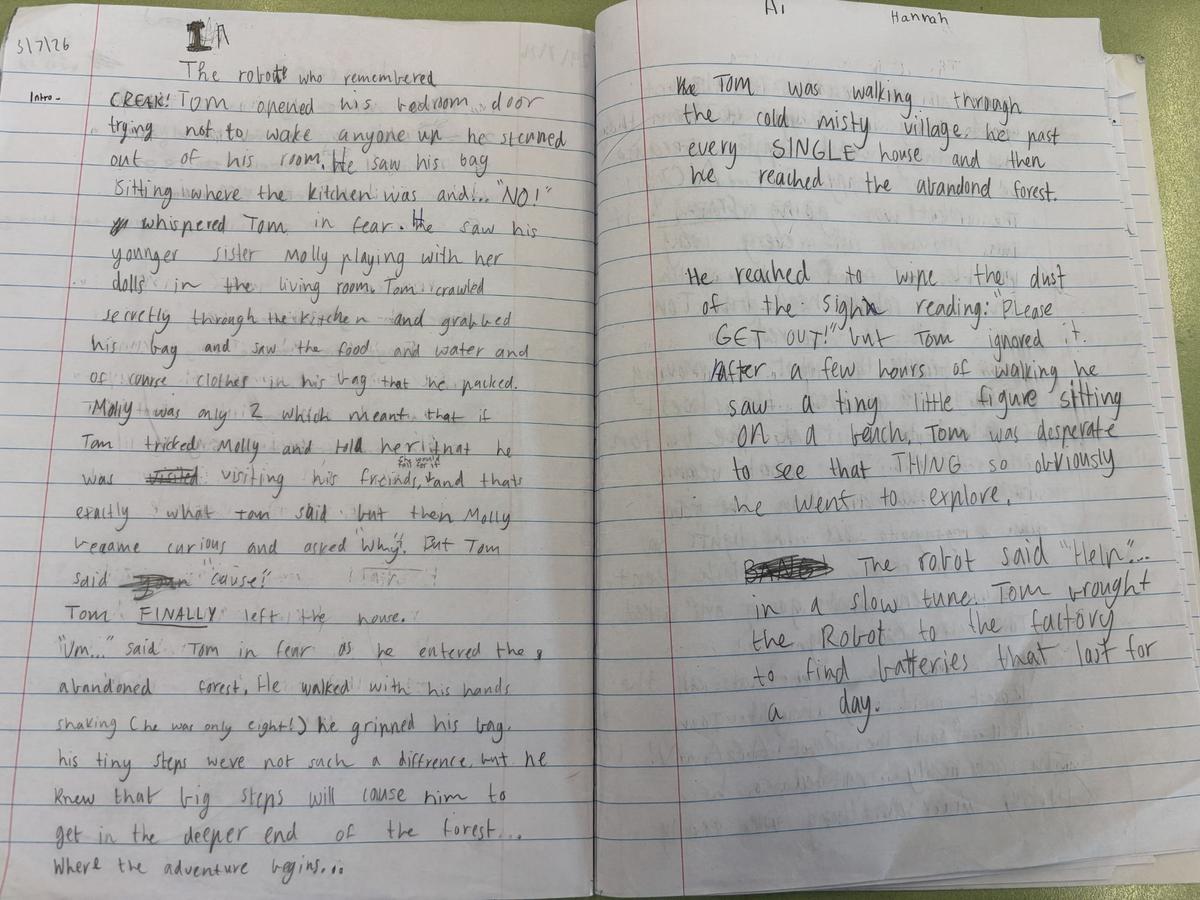 3/7/26
In
The robot who remembered
Intro-
CREAK! Tom opened his bedroom door
trying not to wake anyone up he
out of his room. He saw his bag
Sitting where the kitchen was and... "NO!"
whispered Tom in fear. He saw his
younger sister Molly playing with her
dolls in the living room. Tom crawled
secretly through the kitchen and grabbed
his bag and saw the food and water and
of course clothes in his bag that he packed.
Molly was only 2 which meant that if
Tom tricked Molly and told her that he
was visiting his freinds, she would fall for it and thats
exactly what tom said but then Molly
became curious and asked "why?". But Tom
said "cause!"
Tom FINALLY left the house.
"Um..." said Tom in fear as he entered the
abandoned forest. He walked with his hands
shaking (he was only eight!) he gripped his bag.
his tiny steps were not such a diffrence, but he
knew that big steps will cause him to
get in the deeper end of the forest...
Where the adventure begins...
Hannah
Tom was walking through
the cold misty village. he past
every SINGLE house and then
he reached the abandond forest.
He reached to wipe the dust
of the sign reading: "Please
GET OUT!" but Tom ignored it.
After a few hours of walking he
saw a tiny little figure sitting
on a bench. Tom was desperate
to see that THING so obviously
he went to explore.
The robot said "Help"...
in a slow tune. Tom brought
the Robot to the factory
to find batteries that last for
a day.